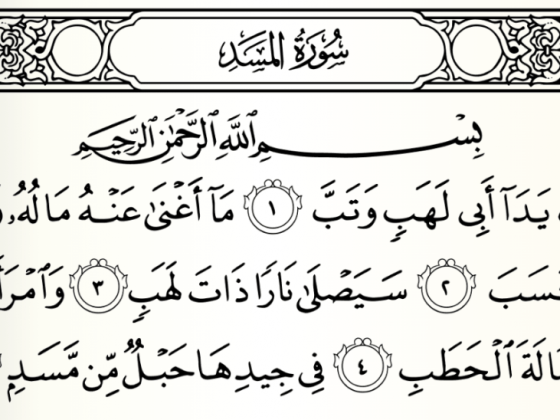 سُورَةُ المَسَدِ
بِسْمِ ٱللَّهِ ٱلرَّحْمَٰنِ ٱلرَّحِيمِ
يَدَآ أَبِى لَهَبٍ وَتَبَّ ١ مَآ أَغْنَىٰ عَنْهُ مَالُهُۥ
٢ سَيَصْلَىٰ نَارًا ذَاتَ لَهَبٍ ٣
ٱلْحَطَبِ ٤ فِى جِيدِهَا حَبْلٌ مِّن مَّسَدٍۭ